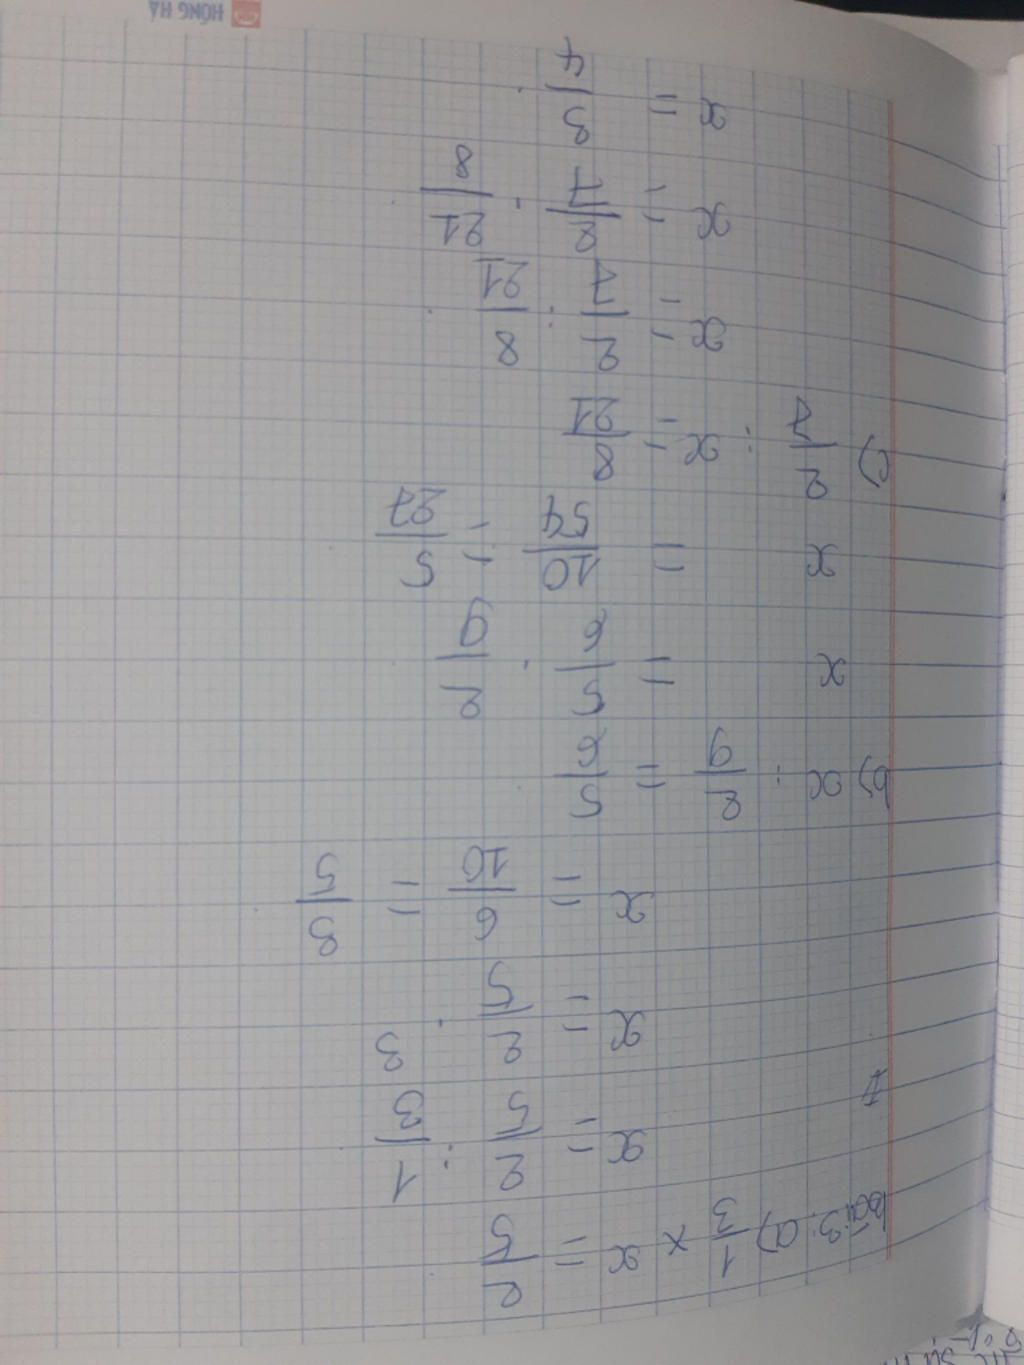 bài 3: a) 1/3 × x = 2/5
x = 2/5 : 1/3
x = 2/5 . 3
x = 6/10 = 3/5
b) x : 2/9 = 5/6
x = 5/6 . 2/9
x = 10/54 = 5/27
c) 2/7 : x = 8/21
x = 2/7 : 8/21
x = 2/7 . 21/8
x = 3/4
HỒNG HÀ